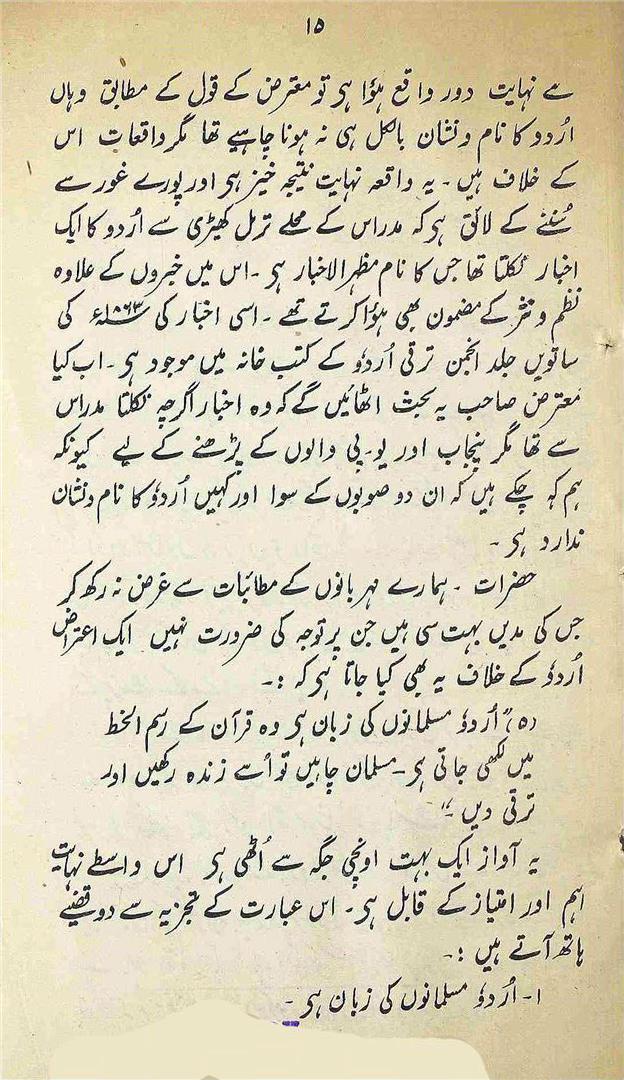 ۱۵
سے نہایت دور واقع ہؤا ہی تو معترض کے قول کے مطابق وہاں
اُردو کا نام و نشان بالکل ہی نہ ہونا چاہیے تھا مگر واقعات اس
کے خلاف ہیں۔ یہ واقعہ نہایت نتیجہ خیز ہی اور پورے غور سے
سُننے کے لائق ہی کہ مدراس کے محلے ترمل کھیڑی سے اُردو کا ایک
اخبار نکلتا تھا جس کا نام مظہر الاخبار ہی۔ اس میں خبروں کے علاوہ
نظم و نثر کے مضمون بھی ہؤا کرتے تھے۔ اسی اخبار کی ۱۸۶۳ء کی
ساتویں جلد انجمن ترقی اُردؤ کے کتب خانہ میں موجود ہی۔ اب کیا
معترض صاحب یہ بحث اٹھائیں گے کہ وہ اخبار اگرچہ نکلتا مدراس
سے تھا مگر پنجاب اور یو۔پی والوں کے پڑھنے کے لیے کیونکہ
ہم کہ چکے ہیں کہ ان دو صوبوں کے سوا اور کہیں اُردؤ کا نام و نشان
ندارد ہی۔
حضرات۔ ہمارے مہربانوں کے مطائبات سے غرض نہ رکھ کر
جس کی مدیں بہت سی ہیں جن پر توجہ کی ضرورت نہیں ایک اعتراض
اُردؤ کے خلاف یہ بھی کیا جاتا ہی کہ :۔
(۵) "اُردؤ مسلمانوں کی زبان ہی وہ قرآن کے رسم الخط
میں لکھی جاتی ہی۔ مسلمان چاہیں تو اُسے زندہ رکھیں اور
ترقی دیں۔"
یہ آواز ایک بہت اونچی جگہ سے اُٹھی ہی اس واسطے نہایت
اہم اور امتیاز کے قابل ہی۔ اس عبارت کے تجزیہ سے دو قضیے
ہاتھ آتے ہیں :۔
۱۔ اُردؤ مسلمانوں کی زبان ہی۔